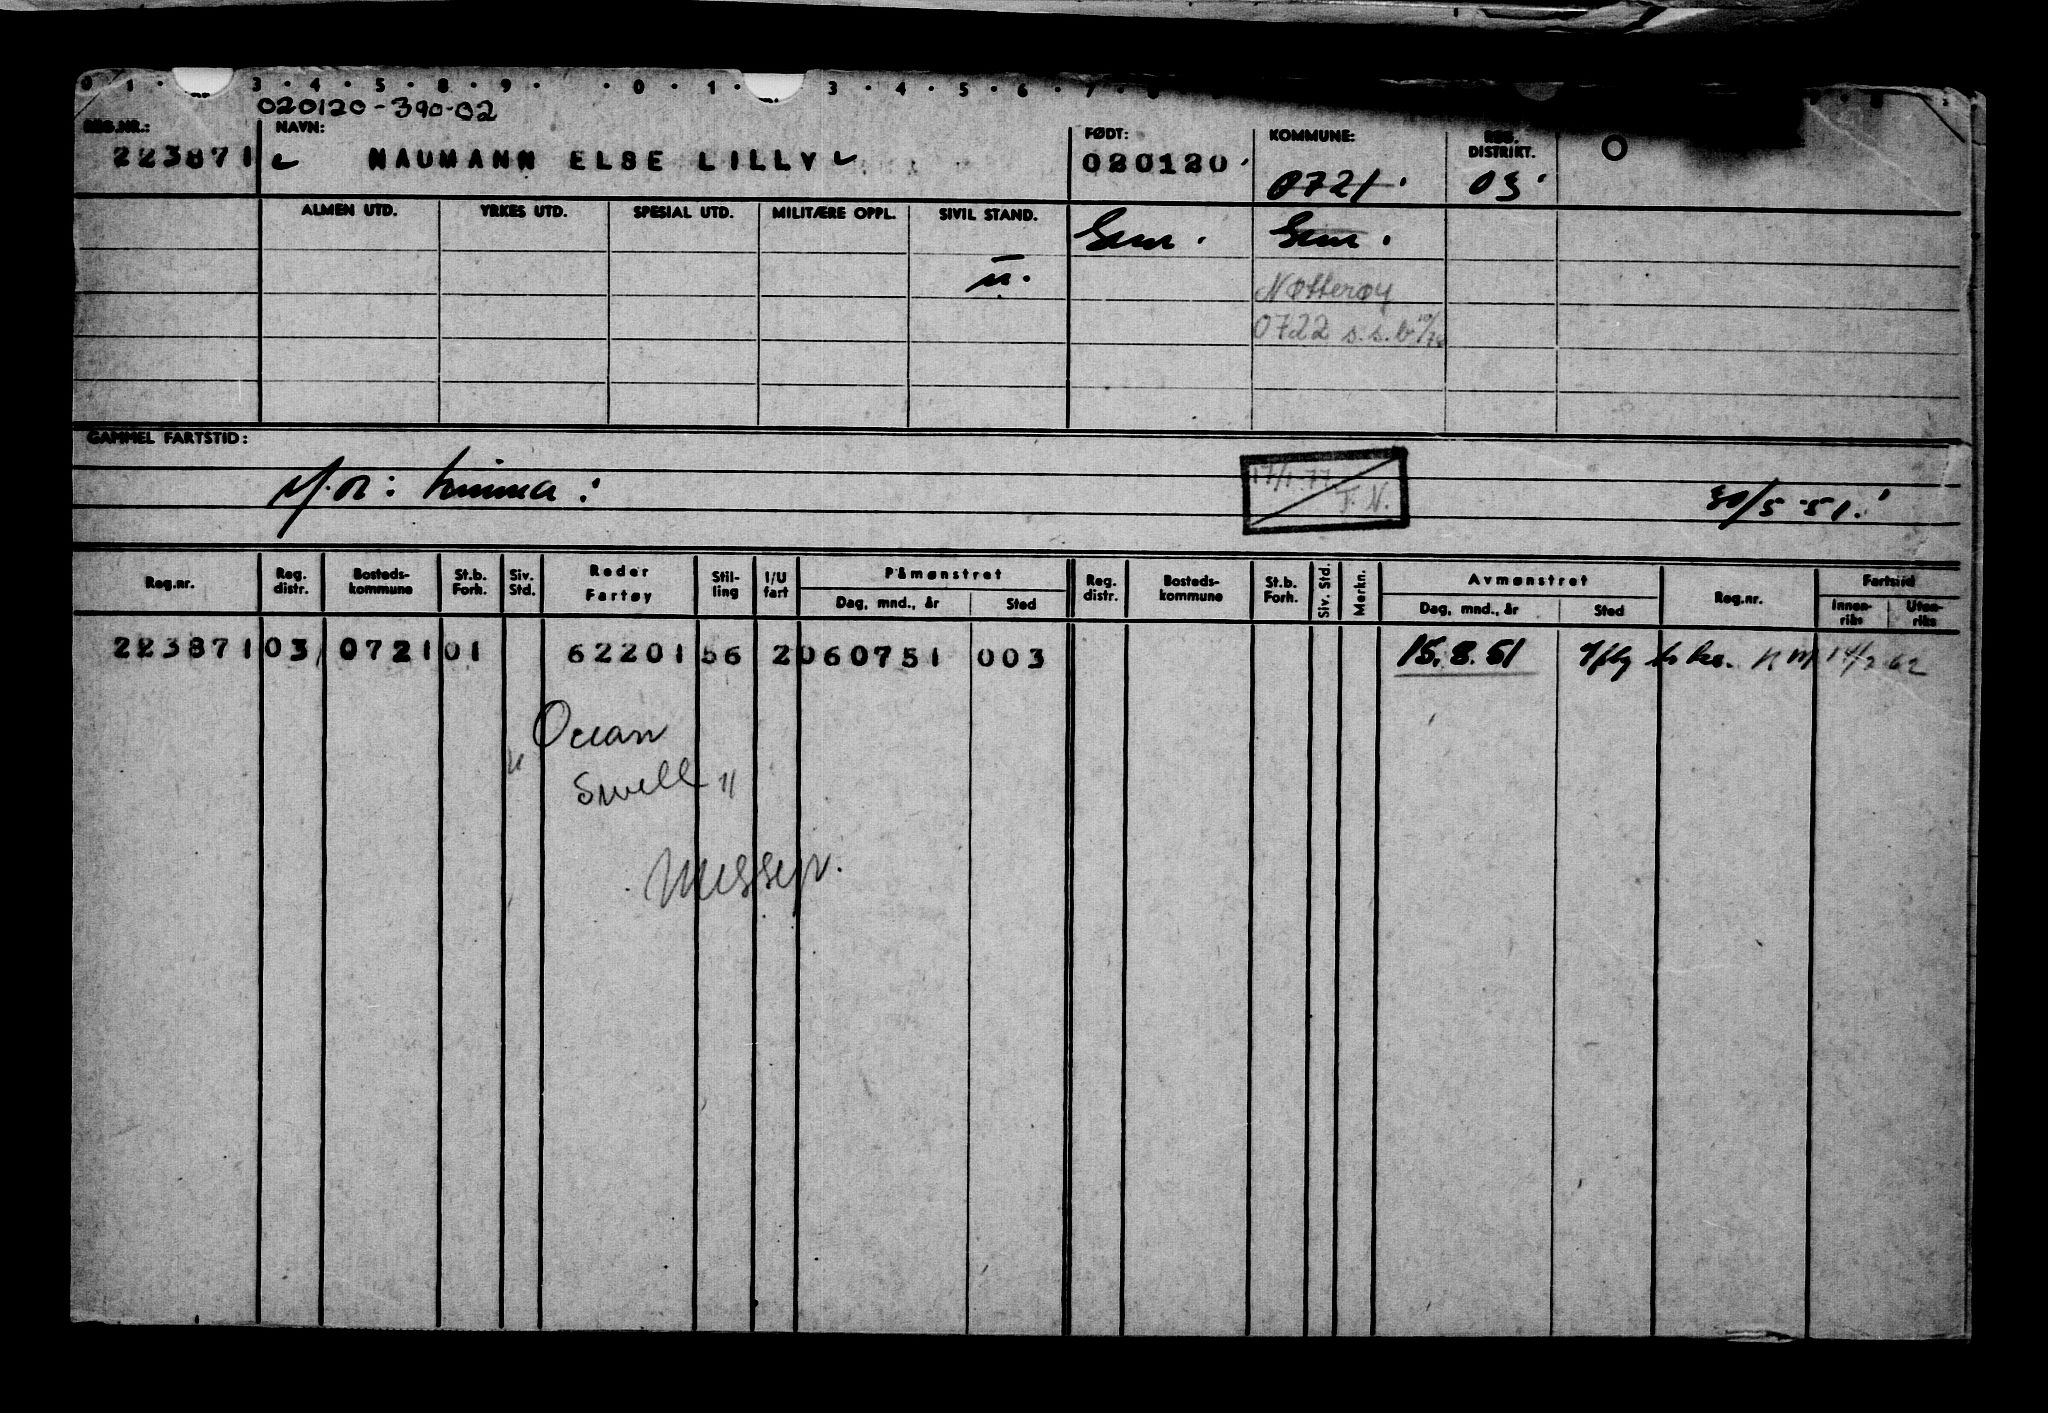 0 1 · 3 · 4 · 5 · 8 · 9 · · 0 · 1 · 3 · 4 · 5 · 6 · 7 · 8
020120-390-02
REG.NR.: NAVN: FØDT: KOMMUNE: REG. DISTRIKT.
223871 NAUMANN ELSE LILLY 020120 0721 03
ALMEN UTD. YRKES UTD. SPESIAL UTD. MILITÆRE OPPL. SIVIL STAND.
Sem. Sem.
u.
Nøtterøy
0722 s.s.b
GAMMEL FARTSTID:
17/1 77
F. N.
30/5-51.
Reg.nr. Reg. distr. Bosteds-kommune St.b. Forh. Siv. Std. Reder Fartøy Stil-ling I/U fart Påmønstret Reg. distr. Bosteds-kommune St.b. Forh. Siv. Std. Merkn. Avmønstret Reg.nr. Fartstid
Dag, mnd., år Sted Dag, mnd., år Sted Innen-riks Uten-riks
223871 03 0721 01 62201 56 2 060751 003 15.8.51
14/2 62
"Ocean
Swell"
Messep.